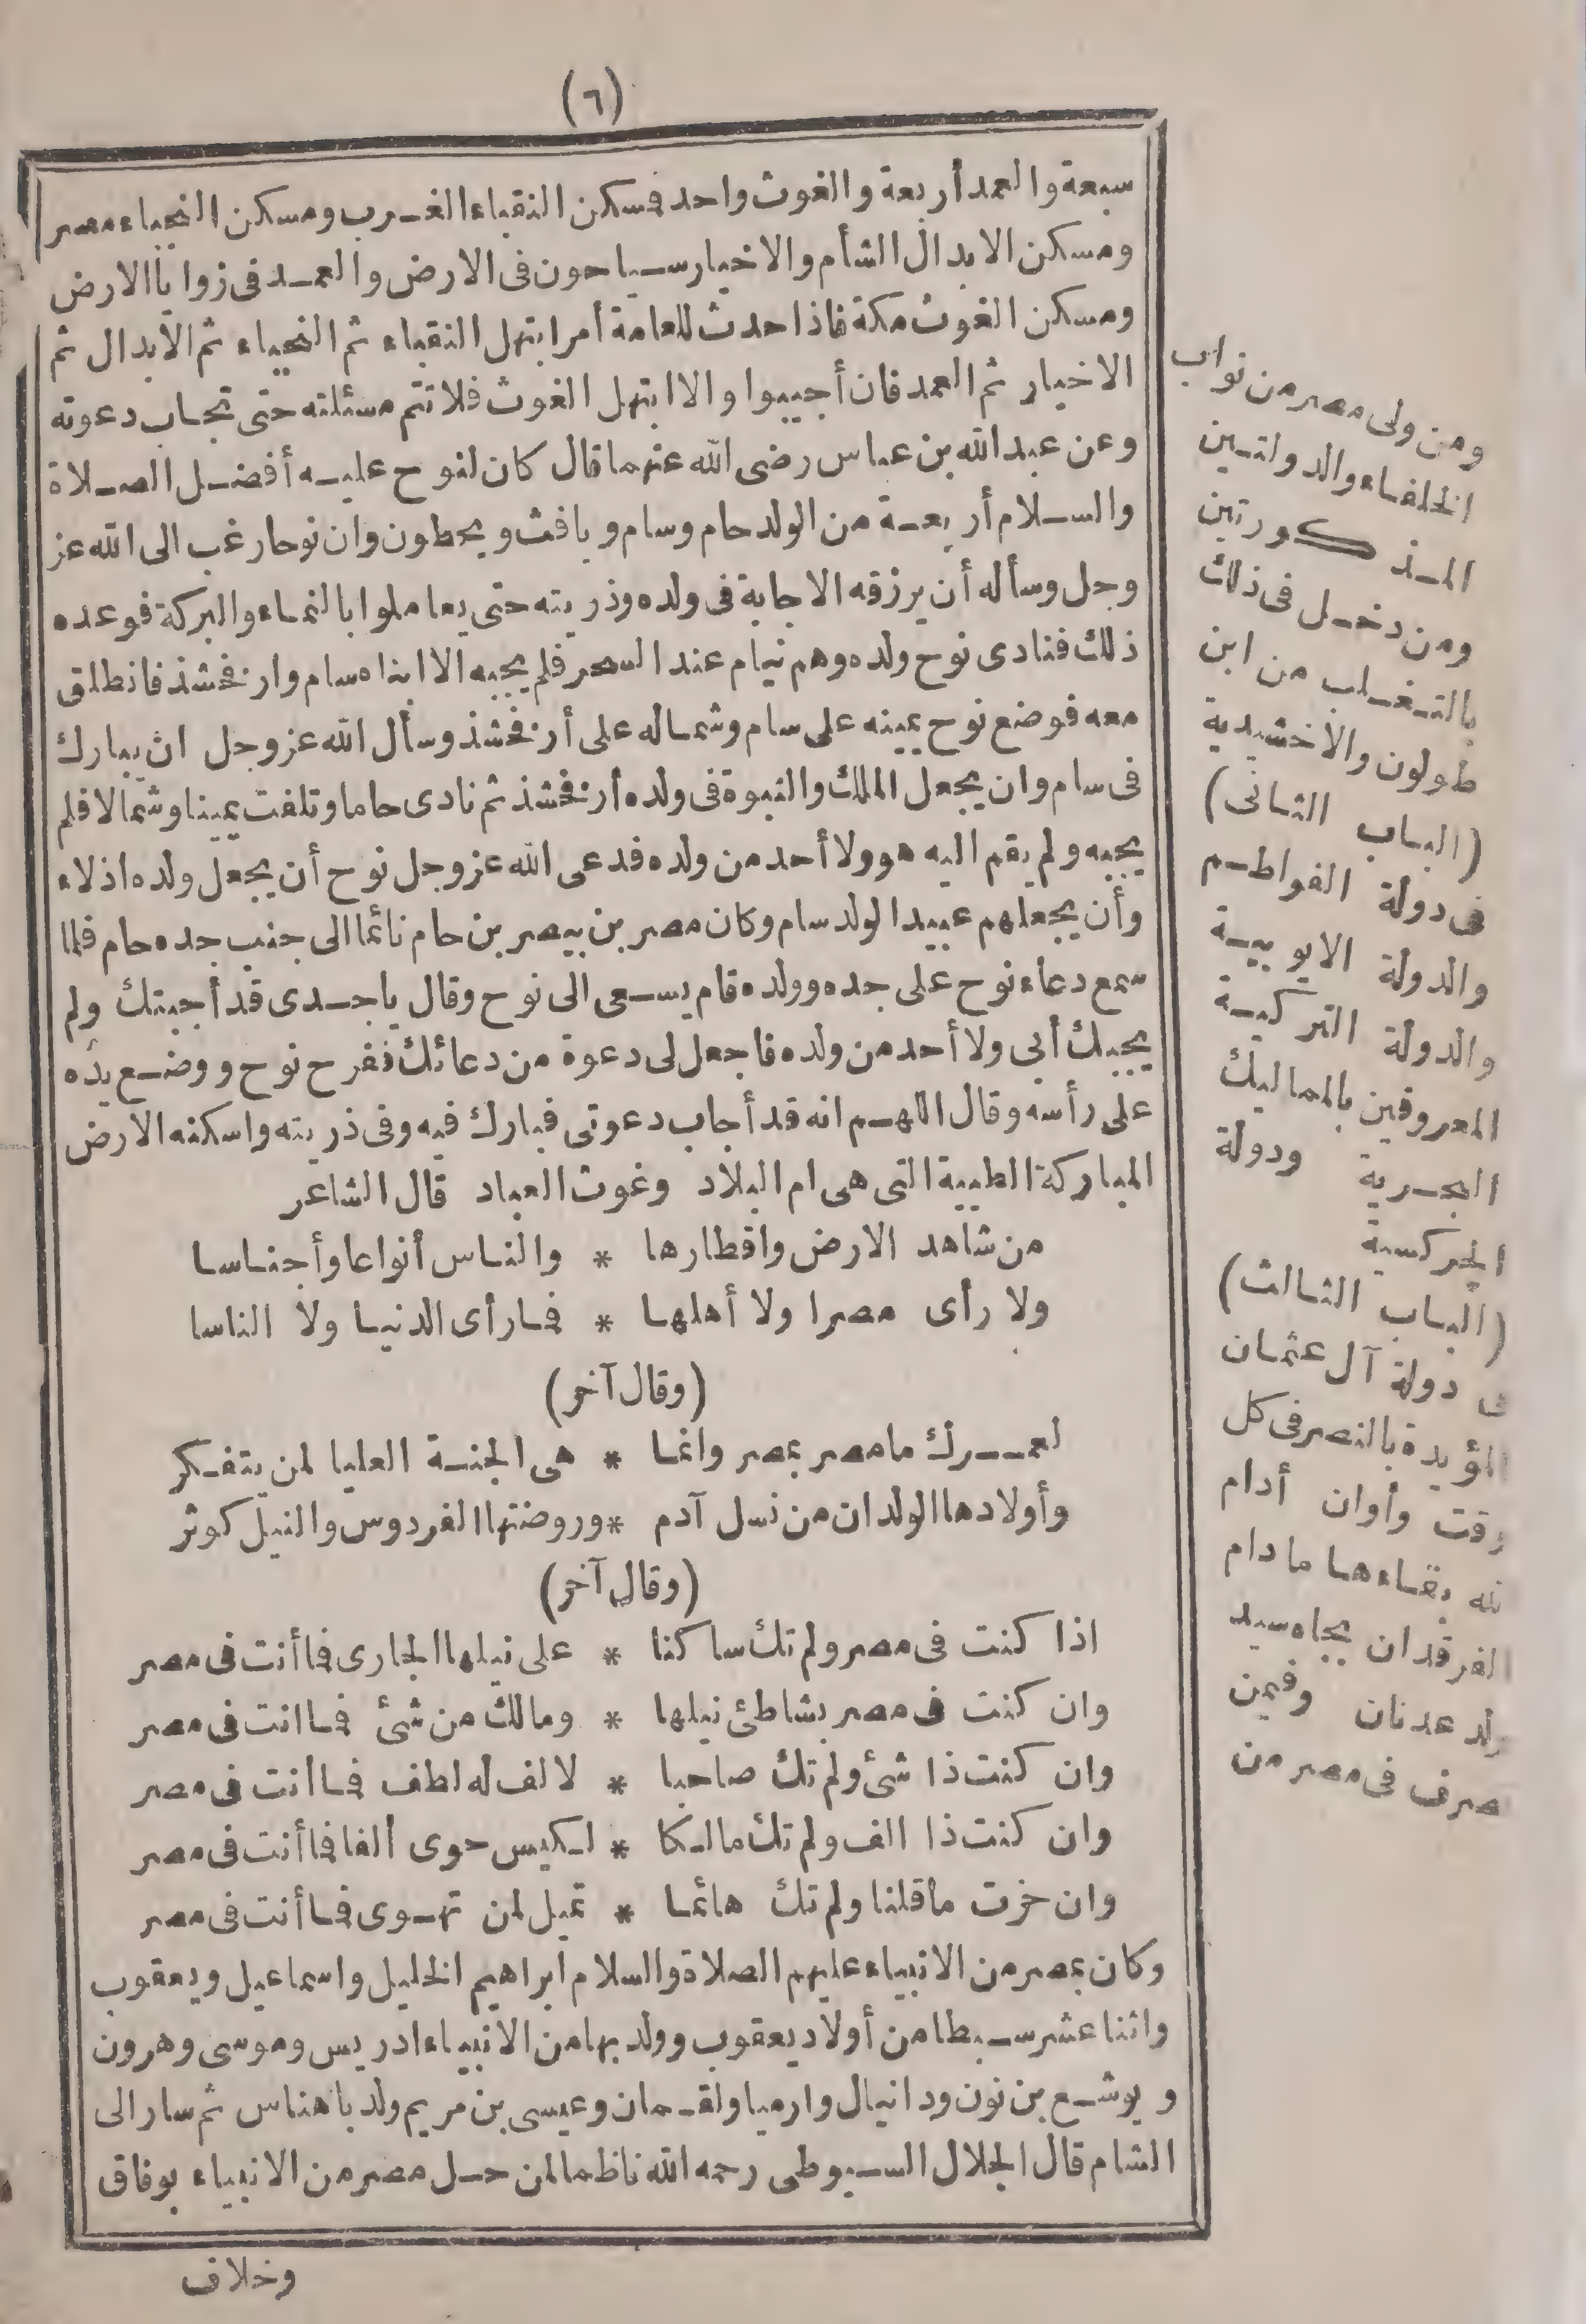 (٦)
سبعة والعمد أربعة والغوث واحد فسكن النقباء الغرب ومسكن النجباء مصر
ومسكن الابدال الشأم والاخيار سياحون فى الارض والعمد فى زوايا الارض
ومسكن الغوث مكة فاذا حدث للعامة أمر ابتهل النقباء ثم النجباء ثم الابدال ثم
الاخيار ثم العمد فان أجيبوا والا ابتهل الغوث فلا تتم مسئلته حتى تجاب دعوته
وعن عبد الله بن عباس رضى الله عنهما قال كان لنوح عليه أفضل الصلاة
والسلام أربعة من الولد حام وسام ويافث ويحطون وان نوحا رغب الى الله عز
وجل وسأله أن يرزقه الاجابة فى ولده وذريته حتى يعاملوا بالنماء والبركة فوعده
ذلك فنادى نوح ولده وهم نيام عند السحر فلم يجبه الا ابناه سام وارفخشذ فانطلق
معه فوضع نوح يمينه على سام وشماله على أرفخشذ وسأل الله عز وجل ان يبارك
فى سام وان يجعل الملك والنبوة فى ولده أرفخشذ ثم نادى حاما وتلفت يمينا وشمالا فلم
يجبه ولم يقم اليه هو ولا أحد من ولده فدعى الله عز وجل نوح أن يجعل ولده اذلاء
وأن يجعلهم عبيدا لولد سام وكان مصر بن بيصر بن حام نائما الى جنب جده حام فلما
سمع دعاء نوح على جده وولده قام يسعى الى نوح وقال ياجدى قد أجبتك ولم
يجبك أبى ولا أحد من ولده فاجعل لى دعوة من دعائك ففرح نوح ووضع يده
على رأسه وقال اللهم انه قد أجاب دعوتى فبارك فيه وفى ذريته واسكنه الارض
المباركة الطيبة التى هى ام البلاد وغوث العباد قال الشاعر
من شاهد الارض واقطارها * والناس أنواعا وأجناسا
ولا رأى مصرا ولا أهلها * فما رأى الدنيا ولا الناسا
(وقال آخر)
لعمرك ما مصر بمصر وانما * هى الجنة العليا لمن يتفكر
وأولادها الولدان من نسل آدم * وروضتها الفردوس والنيل كوثر
(وقال آخر)
اذا كنت فى مصر ولم تك ساكنا * على نيلها الجارى فما أنت فى مصر
وان كنت فى مصر بشاطئ نيلها * ومالك من شئ فما انت فى مصر
وان كنت ذا شئ ولم تك صاحبا * لالف له لطف فما أنت فى مصر
وان كنت ذا الف ولم تك مالكا * لكيس حوى ألفا فما أنت فى مصر
وان حزت ماقلنا ولم تك هائما * تميل لمن تهوى فما أنت فى مصر
وكان بمصر من الانبياء عليهم الصلاة والسلام ابراهيم الخليل واسماعيل ويعقوب
واثنا عشر سبطا من أولاد يعقوب وولد بها من الانبياء ادريس وموسى وهرون
ويوشع بن نون ودانيال وارميا ولقمان وعيسى بن مريم ولد باهناس ثم سار الى
الشام قال الجلال السيوطى رحمه الله ناظما لمن حل مصر من الانبياء بوفاق
وخلاف
ومن ولى مصر من نواب
الخلفاء والدولتين
المذكورتين
ومن دخل فى ذلك
بالتغلب من ابن
طولون والاخشيدية
(الباب الثانى)
فى دولة الفواطم
والدولة الايوبية
والدولة التركية
المعروفين بالمماليك
البحرية ودولة
الجركسية
(الباب الثالث)
فى دولة آل عثمان
المؤيدة بالنصر فى كل
وقت وأوان أدام
الله بقاءها ما دام
الفرقدان بجاه سيد
ولد عدنان وفيمن
تصرف فى مصر من